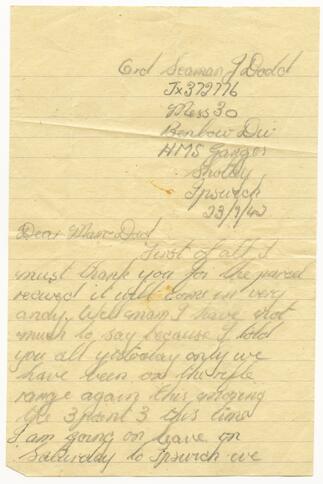 Ord Seaman J Dodd
Jx372776
Mess 30
Benbow Div
HMS Ganges
Shotley
Ipswich
23/9/42
Dear Mam Dad
First of all I
must thank you for the parcel
recived it will come in very
andy. Well mam I have not
much to say because I told
you all yistoday only we
have been on the rifle
range again this morning
3 this time
I am going on leave on
Saturday to Ipswich we